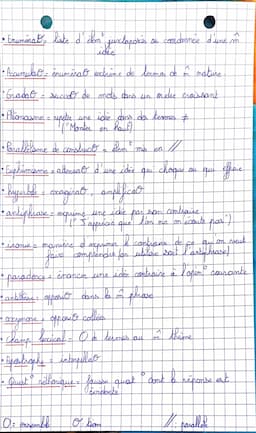 • Enumérat°, liste d'élém^t juxtaposés ou coordonnée d'une m̂
idée
• Accumulat° : énumérat° extrême de termes de m̂ nature
• Gradat° = success° de mots dans un ordre croissant
• Pléonasme = répéter une idée dans des termes ≠
("Monter en haut")
• Parallélisme de construct° = élém^t mis en //
• Euphémisme = adoucit° d'une idée qui choque ou qui effraie
• hyperbole = exagérat°, amplificat°
• antiphrase = exprime une idée par son contraire
("J'apprécie que l'on ne m'écoute pas")
• ironie = manière d'exprimer le contraire de ce qu'on veut
faire comprendre (on utilise svt l'antiphrase)
• paradoxe : énoncer une idée contraire à l'opin° courante
• antithèse : opposit° dans la m̂ phrase
• oxymore : opposit° collée
• Champ lexical = O de termes au m̂ thème
• Apostrophe = interpellat°
• Quest° rhétorique = fausse quest° dont la réponse est
évidente
O : ensemble    // : parallèle